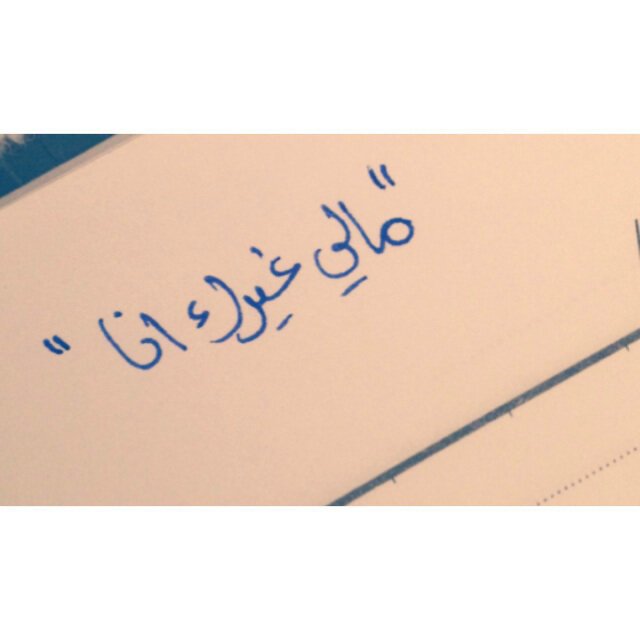 "مالي غيرك انا"